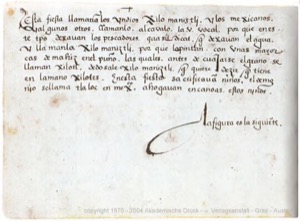 Esta fiesta llamavan los yndios Xilo maniztli. y los mexicanos.
y algunos otros. tamanlo, alcavalo. la v. vocal. por que en es
te tpo dexavan los pescadores que
y llamanla Xilo maniztli. por que la pintan con unas mazor
cas de mahiz en el puño. las quales. antes de cuajarse el grano se
llaman xilotl. de do sale Xilo maniztli. q̃ quiere dezir q̃ tiene
en la mano xilotes. En esta fiesta sacrificavan niños. el demo
nyo se llama tlaloc en mexº. ahogavan en canoas. estos niños.
la figura es la siguiẽte.
copyright 1970 - 2004 Akademische Druck - u. Verlagsanstalt - Graz - Austria